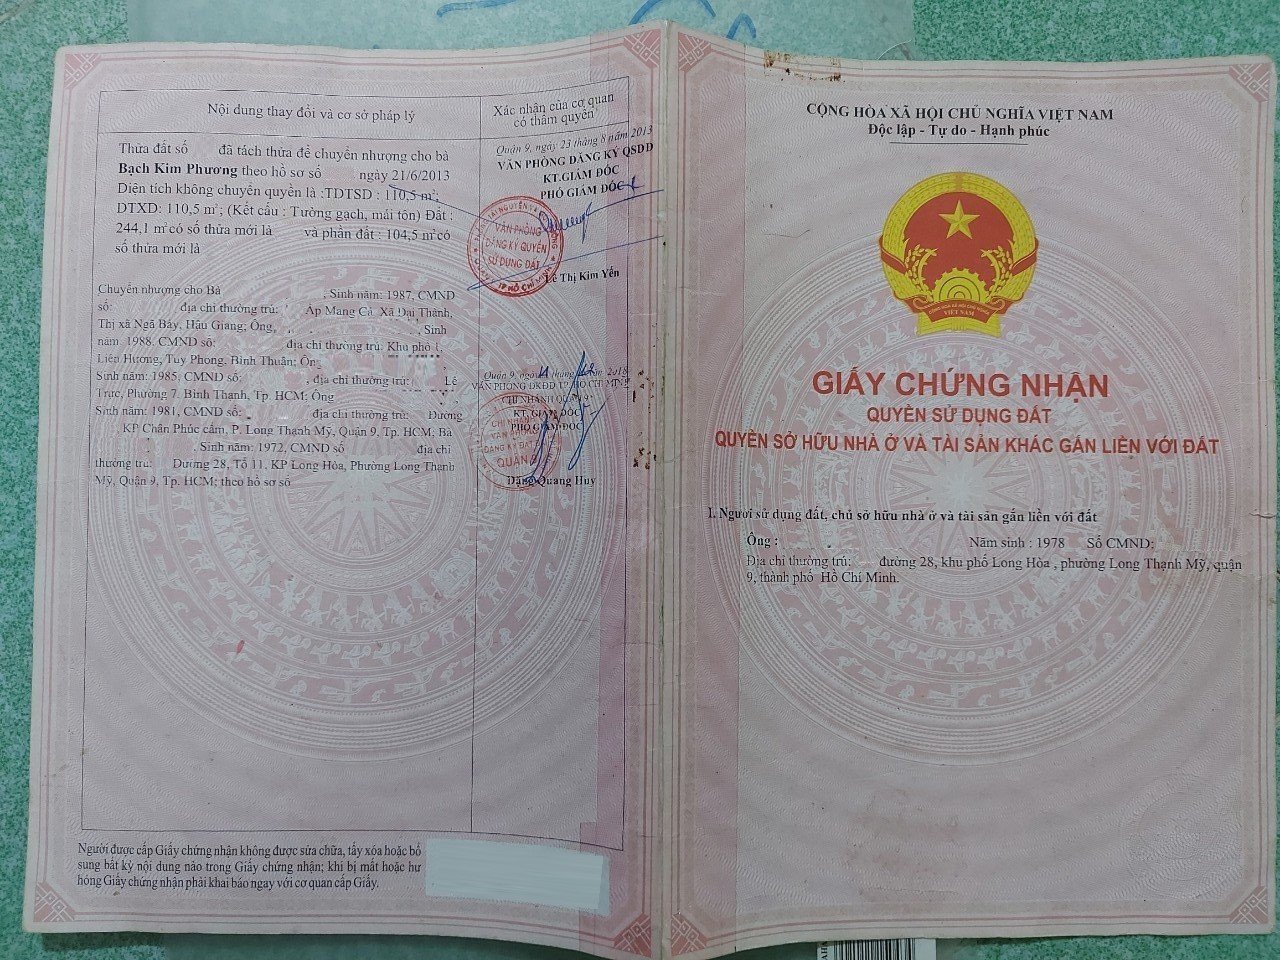 Nội dung thay đổi và cơ sở pháp lý
Xác nhận của cơ quan
có thẩm quyền
Thửa đất số đã tách thửa để chuyển nhượng cho bà
Bạch Kim Phương theo hồ sơ số ngày 21/6/2013
Diện tích không chuyển quyền là :TDTSD : 110,5 m²;
DTXD: 110,5 m²; (Kết cấu : Tường gạch, mái tôn) Đất :
244,1 m²có số thửa mới là và phần đất : 104,5 m²có
số thửa mới là
Quận 9, ngày 23 tháng 8 năm 2013
VĂN PHÒNG ĐĂNG KÝ QSDĐ
KT.GIÁM ĐỐC
PHÓ GIÁM ĐỐC
VĂN PHÒNG
ĐĂNG KÝ QUYỀN
SỬ DỤNG ĐẤT
TP HỒ CHÍ MINH
Lê Thị Kim Yến
Chuyển nhượng cho Bà , Sinh năm: 1987, CMND
số: địa chỉ thường trú: Ấp Mang Cá, Xã Đại Thành,
Thị xã Ngã Bảy, Hậu Giang; Ông, , Sinh
năm: 1988, CMND số: địa chỉ thường trú: Khu phố
Liên Hương, Tuy Phong, Bình Thuận;
Sinh năm: 1985, CMND số: , địa chỉ thường trú: Lê
Trực, Phường 7, Bình Thạnh, Tp. HCM; Ông
Sinh năm: 1981, CMND số: địa chỉ thường trú: Đường
KP Chân Phúc cẩm, P. Long Thạnh Mỹ, Quận 9, Tp. HCM; Bà
, Sinh năm: 1972, CMND số địa chỉ
thường trú: Dương 28, Tổ 11, KP Long Hòa, Phường Long Thạnh
Mỹ, Quận 9, Tp. HCM; theo hồ sơ số
Quận 9, ngày tháng năm 2018
VĂN PHÒNG ĐKĐĐ TP.HỒ CHÍ MINH
CHI NHÁNH QUẬN 9
KT. GIÁM ĐỐC
PHÓ GIÁM ĐỐC
CHI NHÁNH
VĂN PHÒNG
ĐĂNG KÝ ĐẤT ĐAI
QUẬN 9
Đặng Quang Huy
Người được cấp Giấy chứng nhận không được sửa chữa, tẩy xóa hoặc bổ
sung bất kỳ nội dung nào trong Giấy chứng nhận; khi bị mất hoặc hư
hỏng Giấy chứng nhận phải khai báo ngay với cơ quan cấp Giấy.
CỘNG HÒA XÃ HỘI CHỦ NGHĨA VIỆT NAM
Độc lập - Tự do - Hạnh phúc
CỘNG HÒA XÃ HỘI CHỦ NGHĨA
VIỆT NAM
GIẤY CHỨNG NHẬN
QUYỀN SỬ DỤNG ĐẤT
QUYỀN SỞ HỮU NHÀ Ở VÀ TÀI SẢN KHÁC GẮN LIỀN VỚI ĐẤT
I. Người sử dụng đất, chủ sở hữu nhà ở và tài sản gắn liền với đất
Ông : Năm sinh : 1978 Số CMND:
Địa chỉ thường trú: đường 28, khu phố Long Hòa , phường Long Thạnh Mỹ, quận
9, thành phố Hồ Chí Minh.